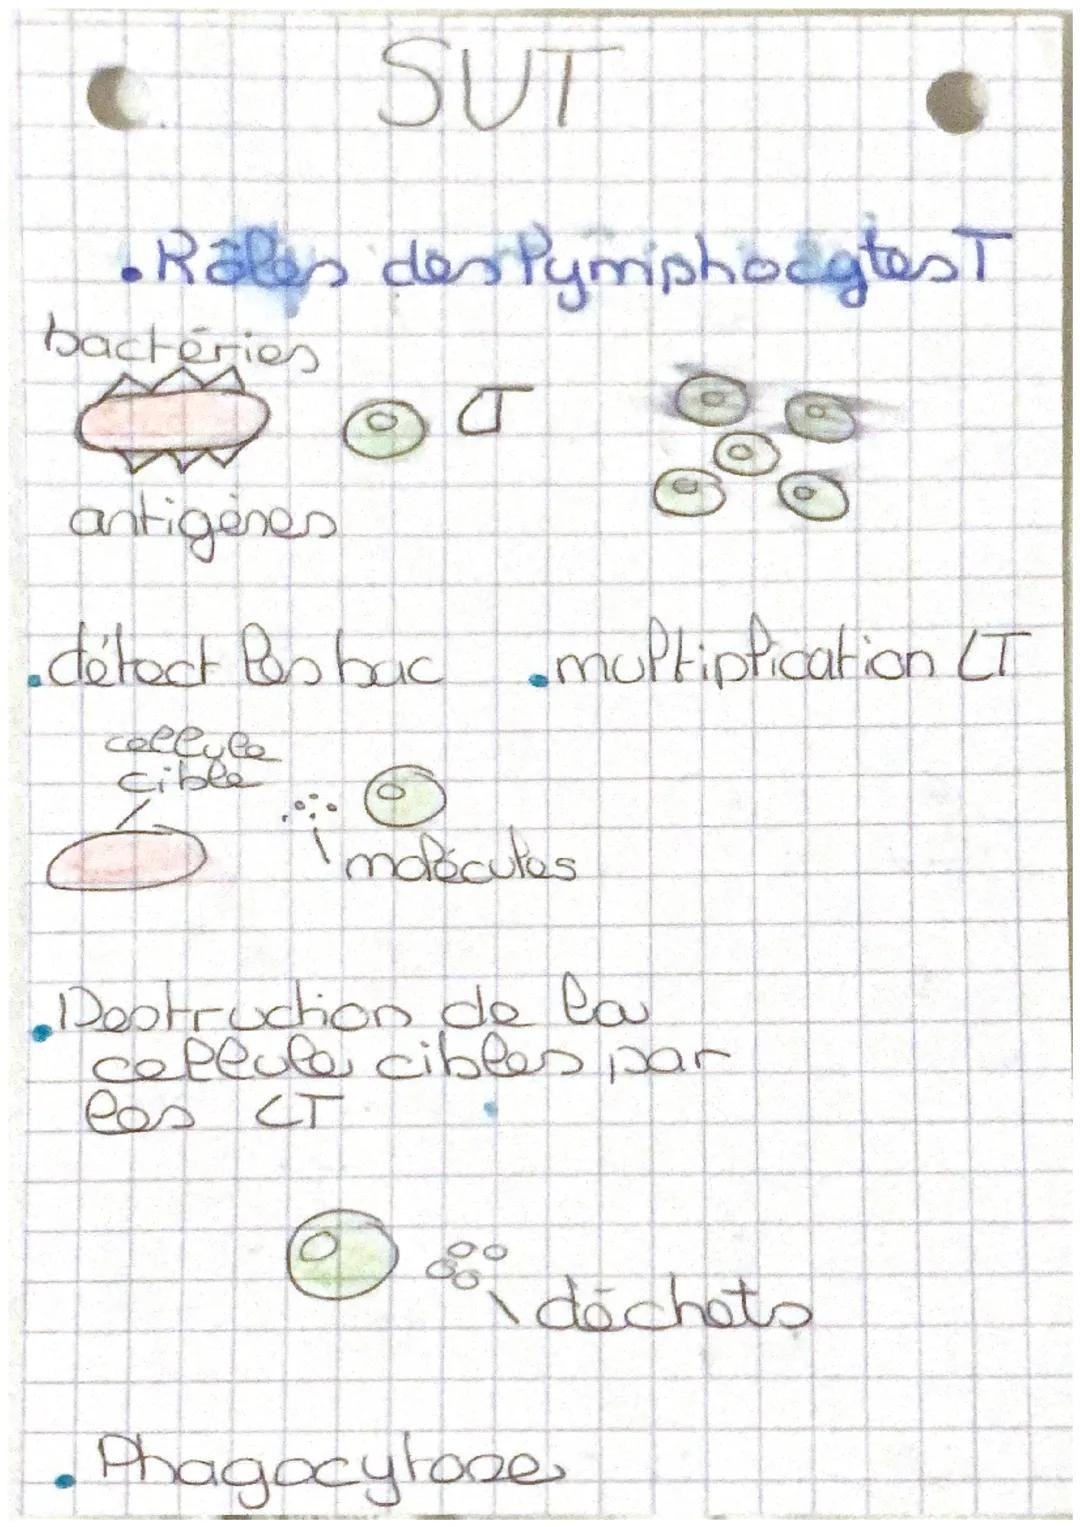 SVT
• Rôles des lymphocytes T
bactéries
LT
antigènes
• détect les bac
• multiplication LT
cellule
cible
molécules
• Destruction de la
cellule cibles par
les LT
déchets
• Phagocytose